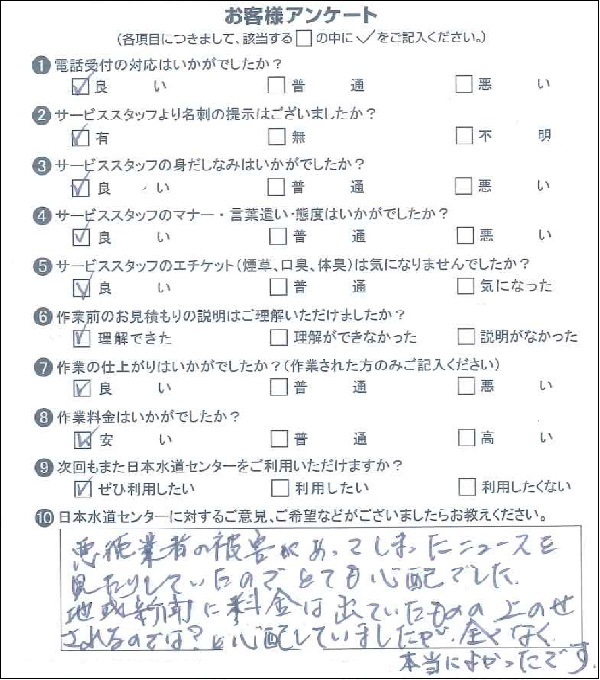 お客様アンケート
(各項目につきまして、該当する□の中に✓をご記入ください。)
❶電話受付の対応はいかがでしたか?
☑良 い □普 通 □悪 い
❷サービススタッフより名刺の提示はございましたか?
☑有 □無 □不 明
❸サービススタッフの身だしなみはいかがでしたか?
☑良 い □普 通 □悪 い
❹サービススタッフのマナー・言葉遣い・態度はいかがでしたか?
☑良 い □普 通 □悪 い
❺サービススタッフのエチケット(煙草、口臭、体臭)は気になりませんでしたか?
☑良 い □普 通 □気になった
❻作業前のお見積もりの説明はご理解いただけましたか?
☑理解できた □理解ができなかった □説明がなかった
❼作業の仕上がりはいかがでしたか?(作業された方のみご記入ください)
☑良 い □普 通 □悪 い
❽作業料金はいかがでしたか?
☑安 い □普 通 □高 い
❾次回もまた日本水道センターをご利用いただけますか?
☑ぜひ利用したい □利用したい □利用したくない
❿日本水道センターに対するご意見、ご希望などがございましたらお教えください。
悪徳業者の被害があってしまったニュースを
見たりしていたので とても心配でした
地域新聞に料金は出ていたものの 上のせ
されるのでは?と心配していましたが、全くなく
本当によかったです。